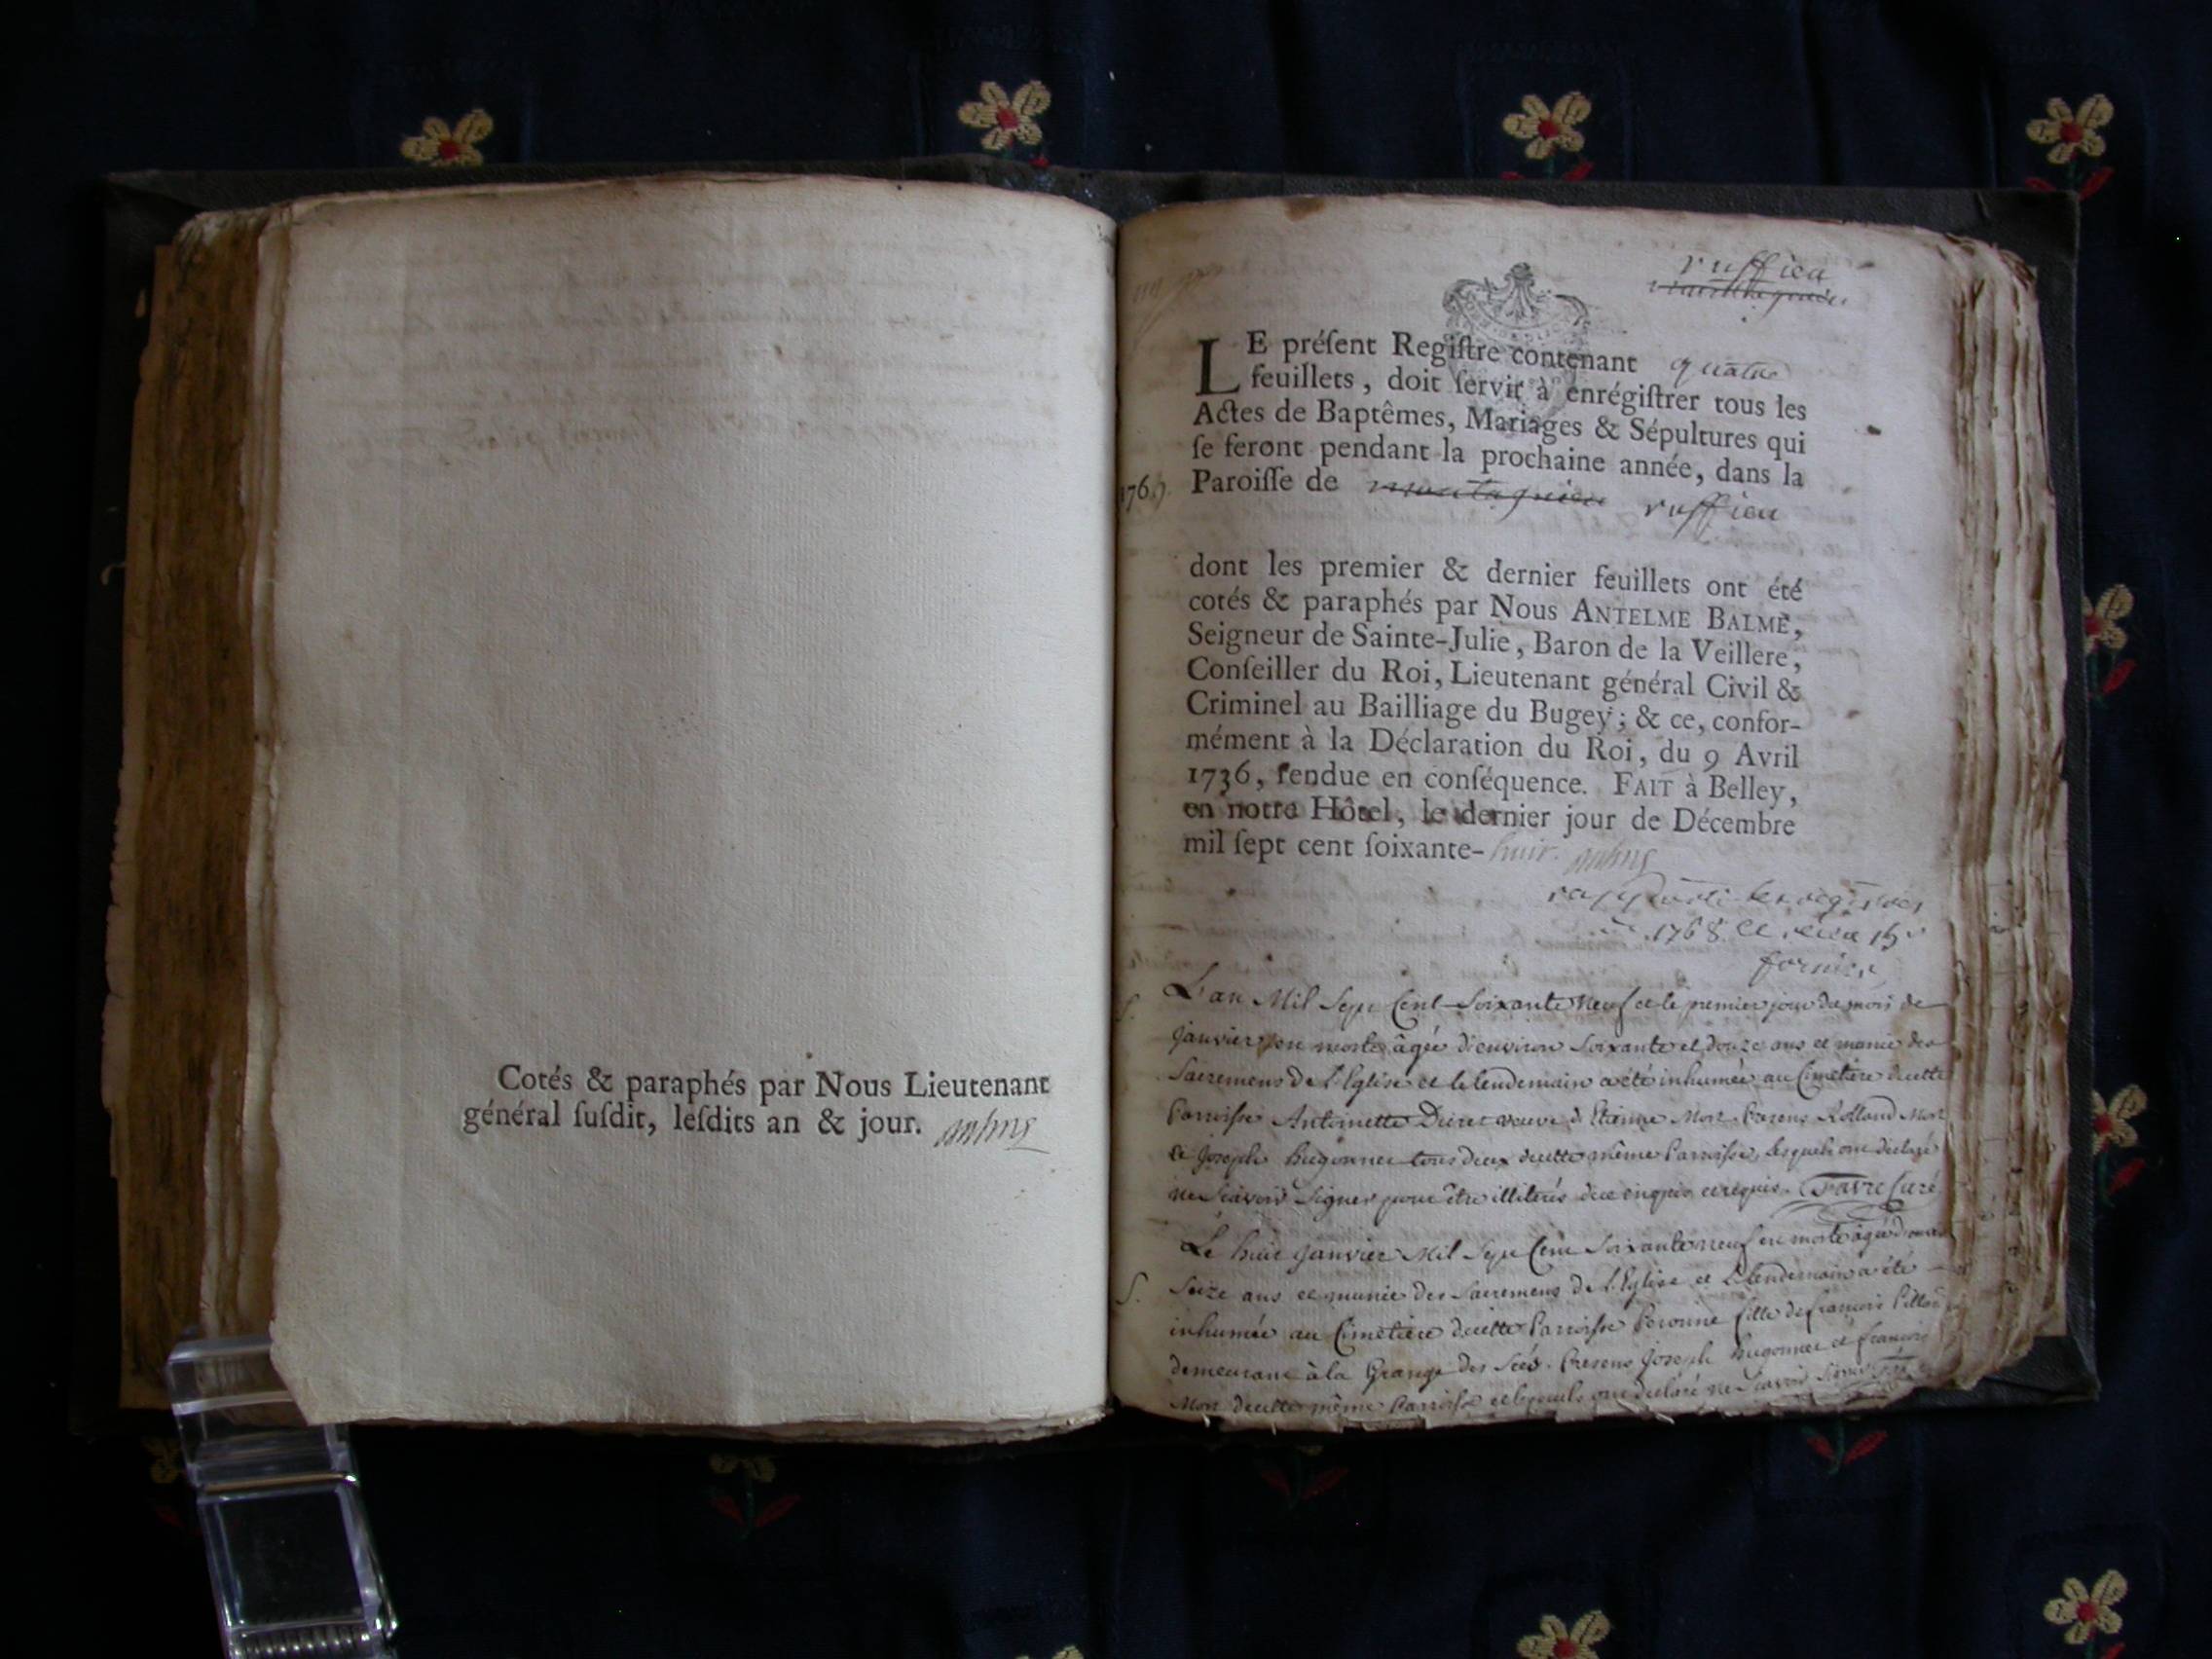 Cotés & paraphés par Nous Lieutenant
général ſuſdit, leſdits an & jour.
ruffieu
LE préſent Regiſtre contenant quatre
feuillets, doit ſervir à enrégiſtrer tous les
Actes de Baptêmes, Mariages & Sépultures qui
ſe feront pendant la prochaine année, dans la
1769.
Paroiſſe de montagnieu ruffieu
dont les premier & dernier feuillets ont été
cotés & paraphés par Nous ANTELME BALME,
Seigneur de Sainte-Julie, Baron de la Veillere,
Conſeiller du Roi, Lieutenant général Civil &
Criminel au Bailliage du Bugey; & ce, confor-
mément à la Déclaration du Roi, du 9 Avril
1736, rendue en conſéquence. FAIT à Belley,
en notre Hôtel, le dernier jour de Décembre
mil ſept cent ſoixante-huit.
1768
L'an Mil Sept Cent Soixante Neuf et le premier jour du mois de
Janvier est morte âgée d'environ Soixante et douze ans et munie des
Sacremens de l'Eglise et le lendemain a été inhumée au Cimetiere de cette
Parroisse Antoinette veuve d'Etienne Mon. Presens Rolland Mon
et Joseph hugonnet tous deux de cette même Parroisse, lesquels ont declaré
ne Scavoir Signer pour être illiterés de ce enquis et requis. Favre Curé
S.
Le huit Janvier Mil Sept Cent Soixante neuf est morte âgée d'environ
Seize ans et munie des Sacremens de l'Eglise et le lendemain a été
inhumée au Cimetiere de cette Parroisse Peronne fille de françois
demeurant à la Grange des. Presens Joseph hugonnet et françois
Mon de cette même Parroisse et lesquels ont declaré ne Scavoir Signer